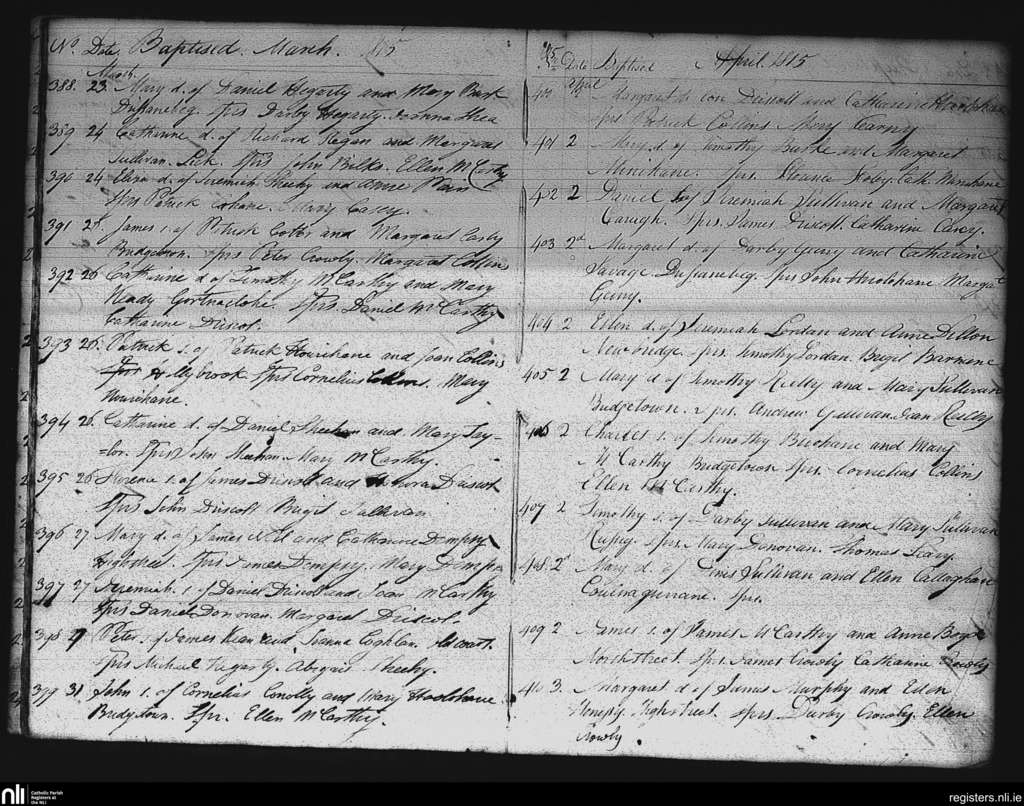 No. Date Baptised March. 1815
March.
388. 23. Mary d. of Daniel Hegarty and Mary Burk
Dusfanebeg. Sprs Darby Hegarty. Joanna Shea
389 24 Catharine d. of Richard Regan and Margaret
Sullivan. Lick. Sprs John Bilko. Ellen McCarthy
390 24 Eliza d. of Jeremiah Sheehy and Anne
Sprs Patrick Mary Casey.
391 25 James s. of Patrick Cotter and Margaret
Bridgetown. Sprs Peter Crowly. Margaret Collins
392 26 Catharine d. of Timothy McCarthy and Mary
Ready Gortnaclohe. Sprs. Daniel McCarthy
Catharine Driscol.
393 26. Patrick s. of Patrick Hourihane and Joan Collins
Hollybrook Sprs Cornelius Collins. Mary
Hourihane.
394 26. Catharine d. of Daniel Sheehan and Mary Tay-
=lor. Sprs John Sheehan. Mary McCarthy.
395 26 Florence s. of James Driscoll and Honora Driscol
Sprs John Driscoll Brigit Sullivan
396 27 Mary d. of James Neil and Catharine Dempsy
Highstreet. Sprs James Dempsy. Mary Dempsy
397 27 Jeremiah s. of Daniel Driscol and Joan McCarthy
Sprs Daniel Donovan. Margaret Driscol.
398 29 Peter s. of James Kean and Joanna Coghlan
Sprs Michael Hegarty. Abigail Sheehy.
399 31 John s. of Cornelius Conolly and Mary Hoolahane
Bridgetown. Spr. Ellen McCarthy.
No Date Baptised April 1815
April
400 Margaret d. Con Driscoll and Catharine Hoolahane
Sprs Patrick Collins Mary Kearny
401 2 Mary d. of Timothy Burke and Margaret
Minihane. Sprs. Cath. Minihane
402 2 Daniel s of Jeremiah Sullivan and Margaret
Carugh. Sprs. James Driscoll. Catharine Casey.
403 2d Margaret d. of Darby Geiny and Catharine
Savage. Dusfanebeg. Sprs John Hoolahane Margat
Geiny.
404 2 Ellen d. of Jeremiah Lordan and Anne Dillon
Newbridge. Sprs. Timothy Lordan. Brigit
405 2 Mary d of Timothy Reilly and Mary Sullivan
Bridgetown. Sprs. Andrew Sullivan. Joan Reilly
406 2 Charles s. of Timothy Brickane and Mary
McCarthy Bridgetown Sprs. Cornelius Collins
Ellen McCarthy.
407 2 Timothy s. of Darby Sullivan and Mary Sullivan
Sprs. Mary Donovan. Thomas Leary.
408. 2d Mary d. of Denis Sullivan and Ellen Callaghane
Sprs.
409 2 James s. of James McCarthy and Anne
Northstreet. Sprs. James Crowly Catharine Crowly
410 3. Margaret d. of James Murphy and Ellen
Highstreet. Sprs Darby Crowly. Ellen
Crowly
nli Catholic Parish
Registers at
the NLI
registers.nli.ie